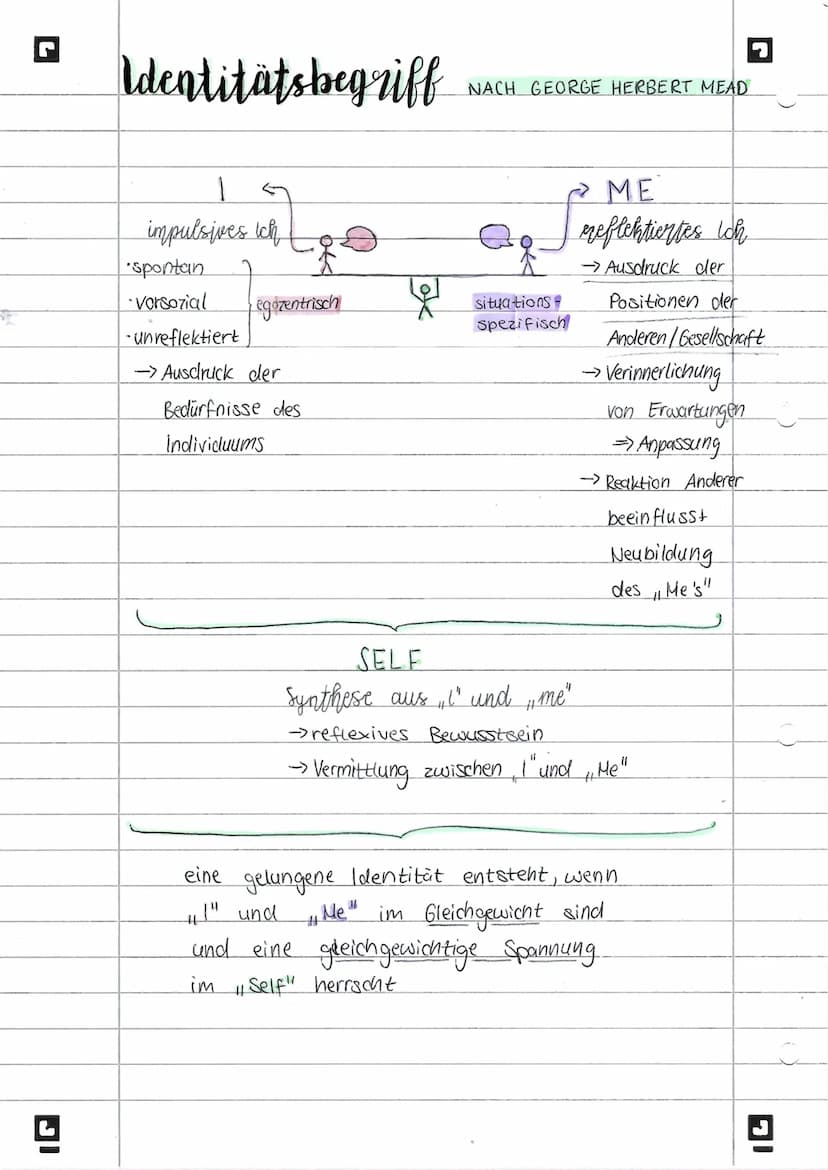 Identitätsbegriff NACH GEORGE HERBERT MEAD
I
impulsives Ich
· spontan
· vorsozial
· unreflektiert
egozentrisch
→ Ausdruck der
Bedürfnisse des
Individuums
ME
reflektiertes Ich
situations-
spezifisch
→ Ausdruck der
Positionen der
Anderen/Gesellschaft
→ Verinnerlichung
von Erwartungen
⇒ Anpassung
→ Reaktion Anderer
beeinflusst
Neubildung
des „Me's"
SELF
Synthese aus „I" und „me"
→ reflexives Bewusstsein
→ Vermittlung zwischen „I" und „Me"
eine gelungene Identität entsteht, wenn
„I" und „Me" im Gleichgewicht sind
und eine gleichgewichtige Spannung
im „Self" herrscht